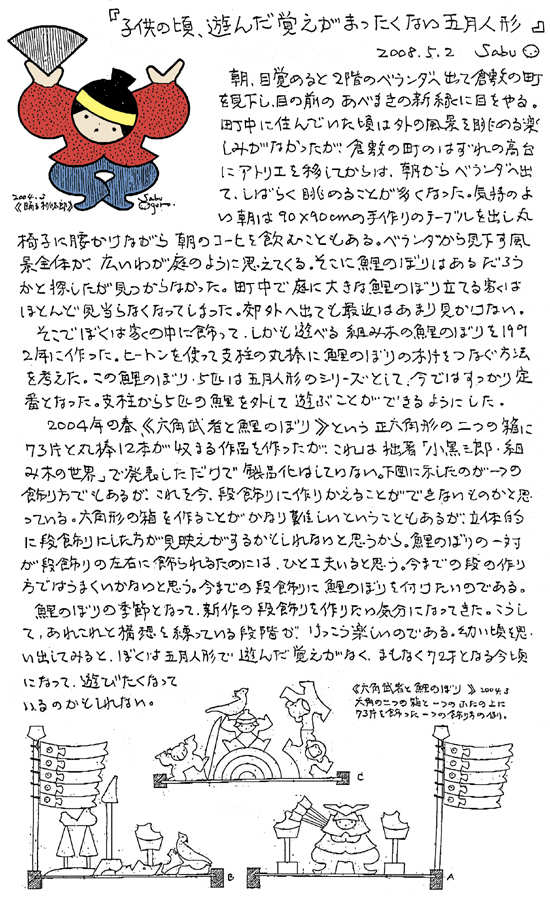 『子供の頃、遊んだ覚えがまったくない五月人形』
2008.5.2 Sabu
朝、目覚めると2階のベランダへ出て倉敷の町
を見下し、目の前のあべまきの新緑に目をやる。
町中に住んでいた頃は外の風景を眺める楽
しみがなかったが、倉敷の町のはずれの高台
にアトリエを移してからは、朝からベランダへ出
て、しばらく眺めることが多くなった。気持のよ
い朝は90×90cmの手作りのテーブルを出し丸
2004.3
《踊る利休郎》
Sabu
Oguro.
椅子に腰かけながら朝のコーヒを飲むこともある。ベランダから見下す風
景全体が、広いわが庭のように思えてくる。そこに鯉のぼりはあるだろう
かと探したが見つからなかった。町中で庭に大きな鯉のぼり立てる家は
ほとんど見当らなくなってしまった。郊外へ出ても最近はあまり見かけない。
そこでぼくは家の中に飾って、しかも遊べる組み木の鯉のぼりを199
2年に作った。ヒートンを使って支柱の丸棒に鯉のぼりの木片をつなぐ方法
を考えた。この鯉のぼり・5匹は五月人形のシリーズとして、今ではすっかり定
番となった。支柱から5匹の鯉を外して遊ぶことができるようにした。
2004年の春、《六角武者と鯉のぼり》という正六角形の二つの箱に
73片と丸棒12本が収まる作品を作ったが、これは拙著「小黒三郎・組
み木の世界」で発表しただけで製品化はしていない。下図に示したのが一つの
飾り方でもあるが、これを今、段飾りに作りかえることができないものかと思
っている。六角形の箱を作ることがかなり難しいということもあるが、立体的
に段飾りにした方が見映えがするかもしれないと思うから。鯉のぼりの一対
が段飾りの左右に飾られるたのには、ひと工夫いると思う。今までの段の作り
方ではうまくいかないと思う。今までの段飾りに鯉のぼりを付けたいのである。
鯉のぼりの季節となって、新作の段飾りを作りたい気分になってきた。こうし
て、あれこれと構想を練っている段階が、けっこう楽しいのである。幼い頃を思
い出してみると、ぼくは五月人形で遊んだ覚えがなく、まもなく72才となる今頃
になって、遊びたくなって
いるのかもしれない。
《六角武者と鯉のぼり》2004.3
六角の二つの箱と一つのふたの上に
73片を飾った一つの飾り方の例り。
C
B
A